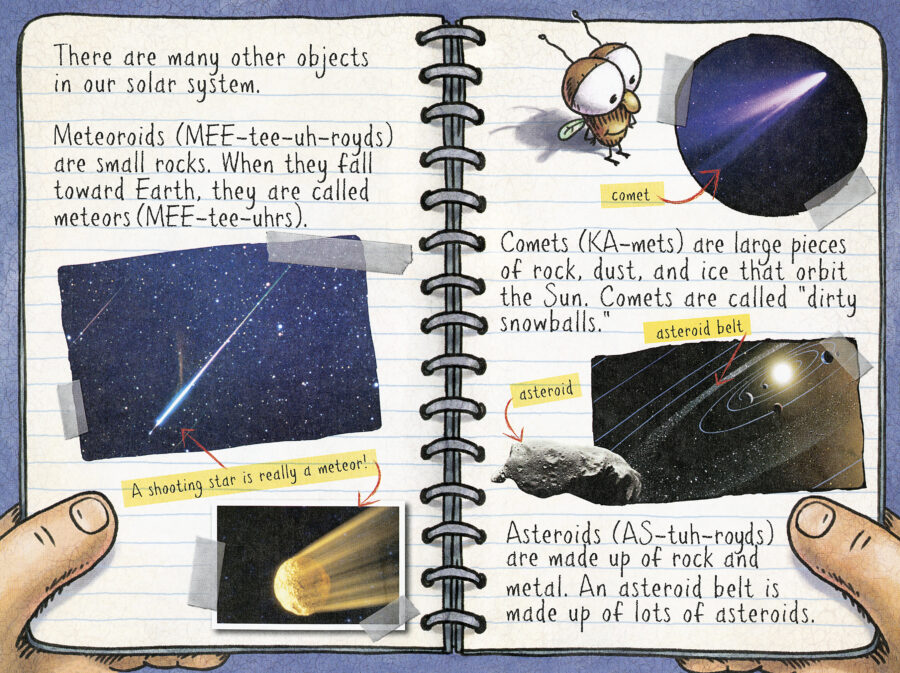 There are many other objects
in our solar system.
Meteoroids (MEE-tee-uh-royds)
are small rocks. When they fall
toward Earth, they are called
meteors (MEE-tee-uhrs).
A shooting star is really a meteor!
comet
Comets (KA-mets) are large pieces
of rock, dust, and ice that orbit
the Sun. Comets are called "dirty
snowballs."
asteroid belt
asteroid
Asteroids (AS-tuh-royds)
are made up of rock and
metal. An asteroid belt is
made up of lots of asteroids.